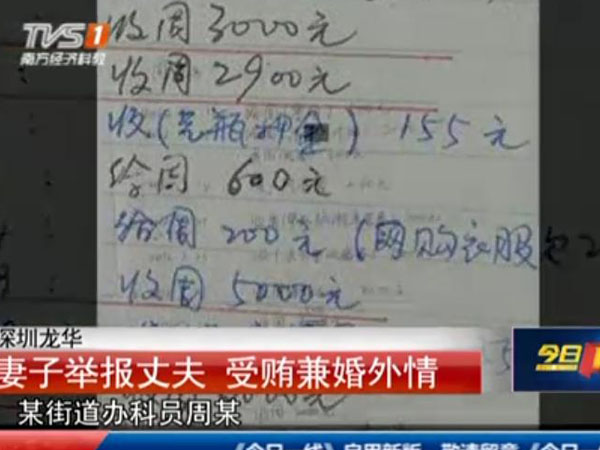 TVS1
南方经济科教
收周3000元
收周2900元
收(荒瓶押金) 155元
给周 600元
给周 200元 (网购衣服
收周 5000元
深圳龙华
妻子举报丈夫 受贿兼婚外情
今日
某街道办科员周某